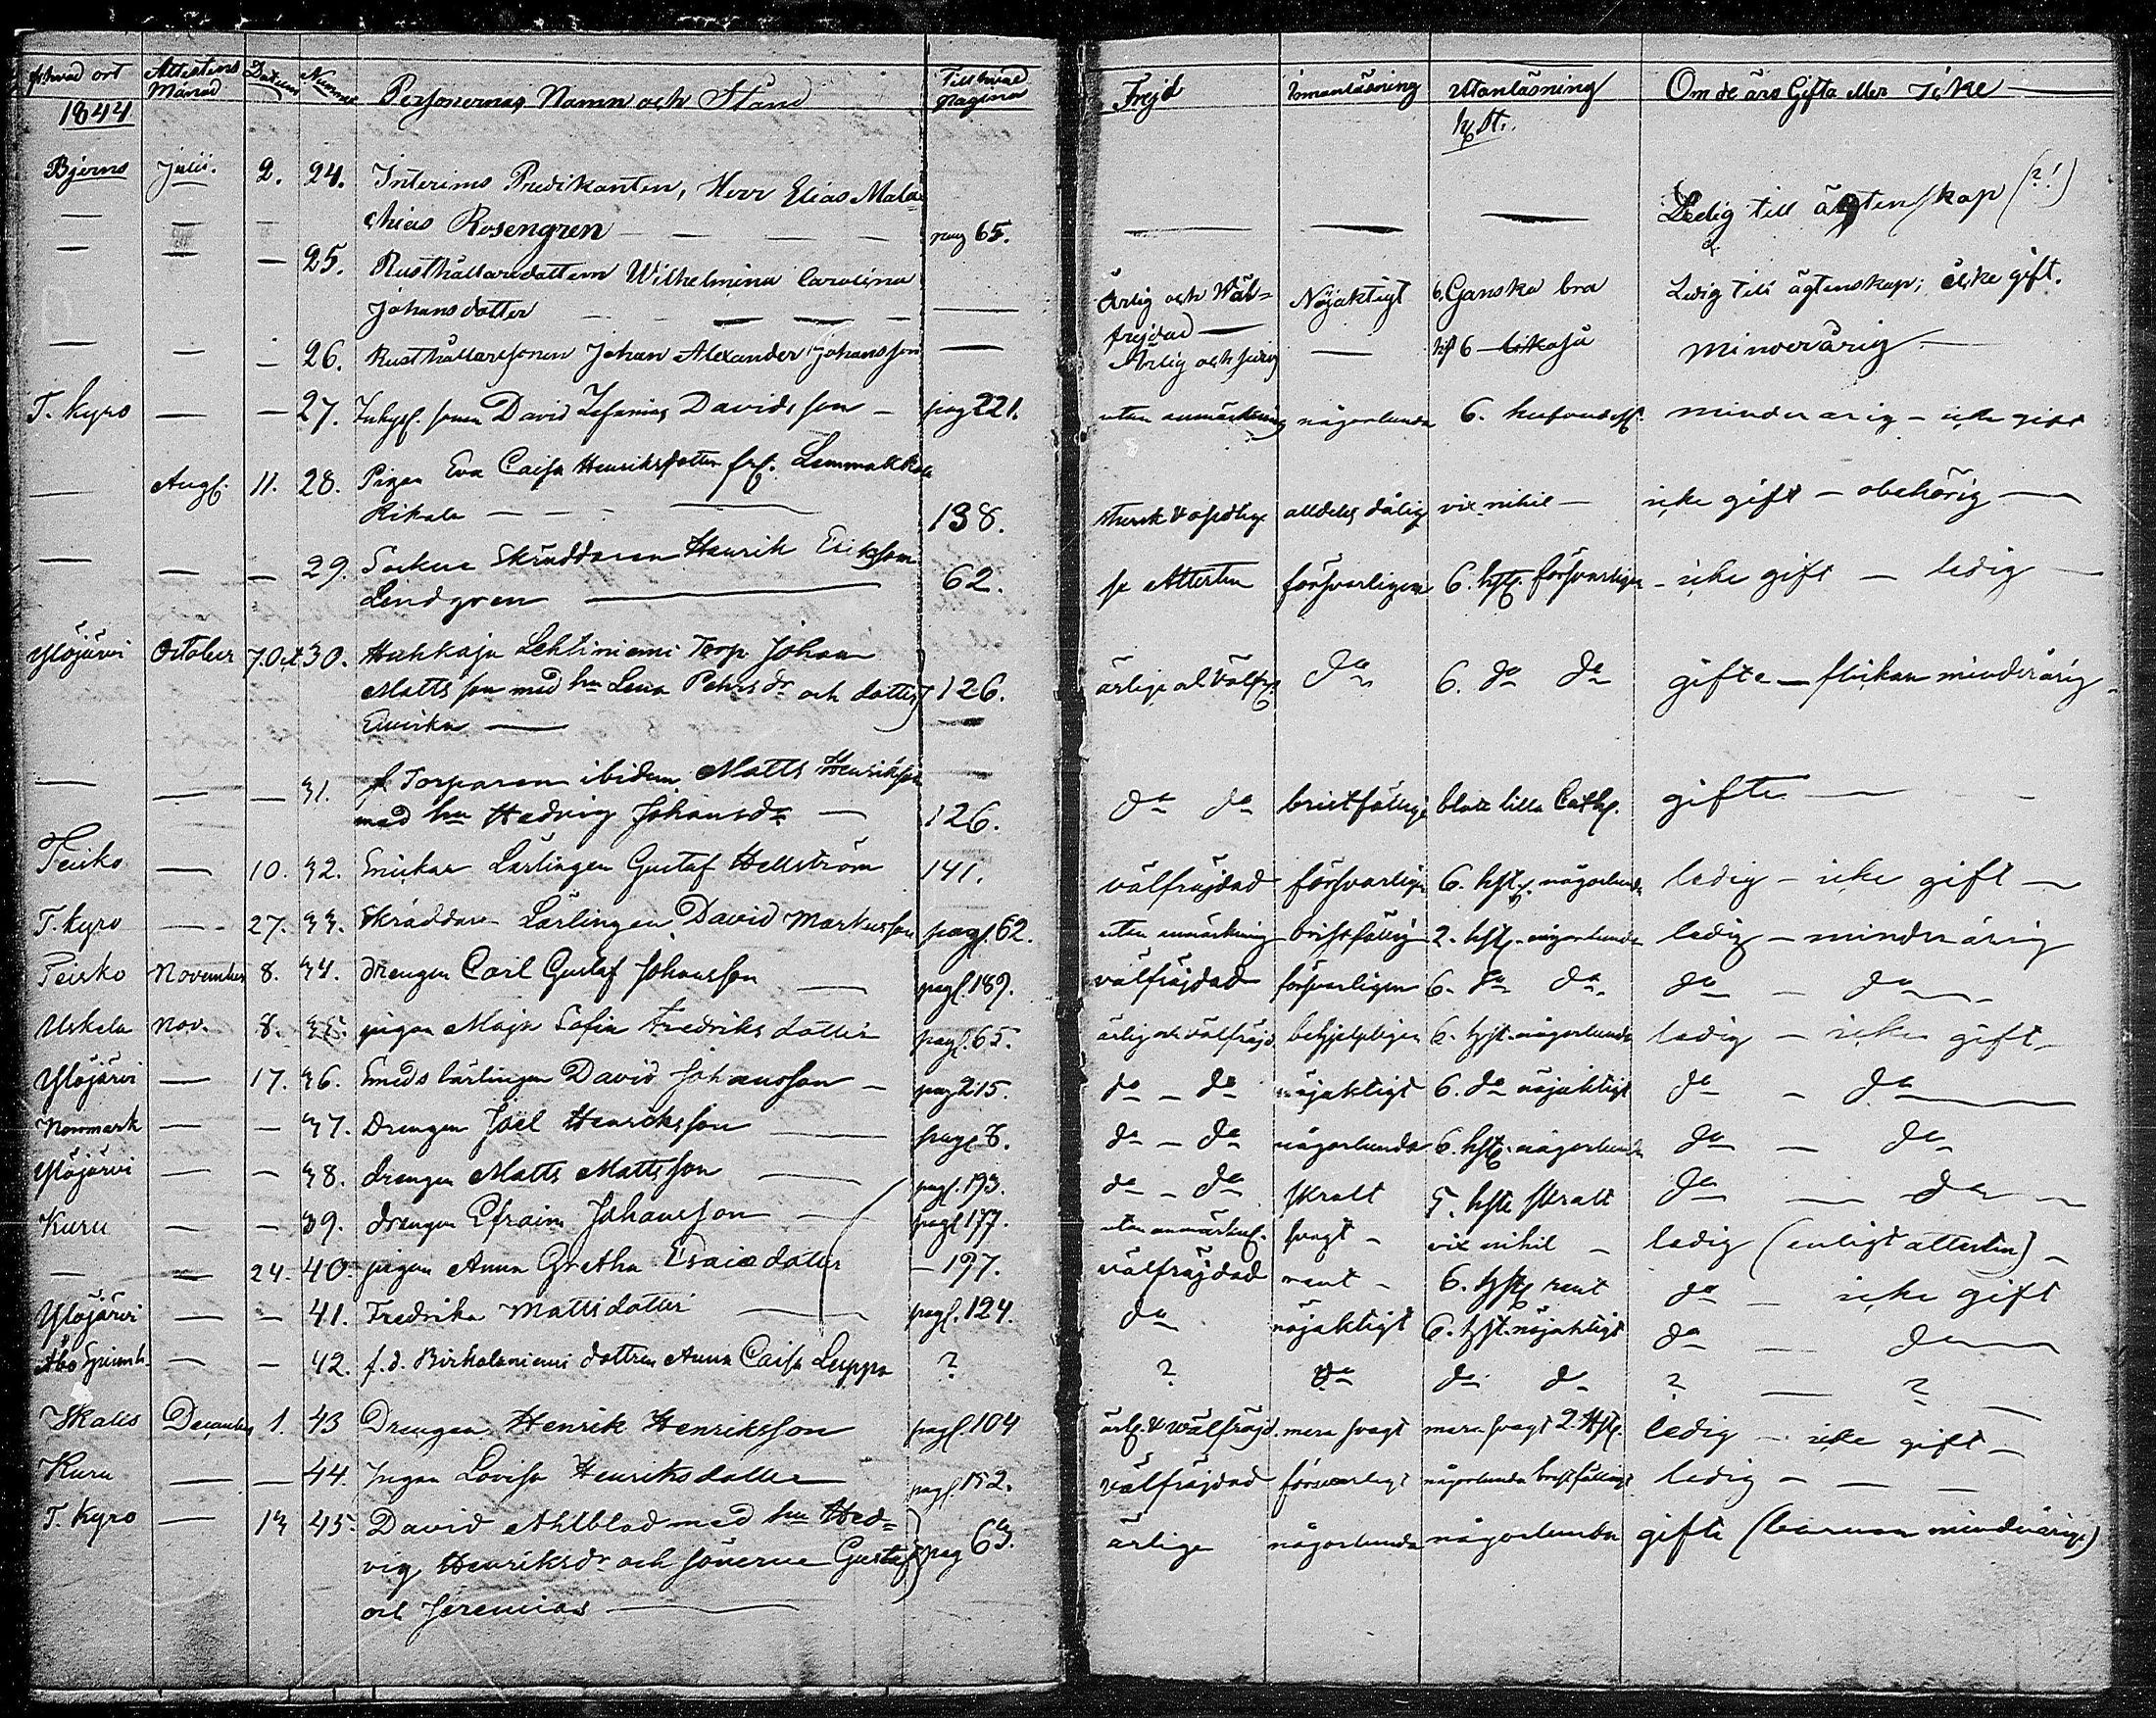 ort Attestens Månad Datum Nummer Personernas Namn och Stånd Till hvad pagina Frejd innanläsning utanläsning Om de äro Gifta eller Icke
1844
Björns Julii. 2. 24. Interims Predikanten, Herr Elias Mala=
chias Rosengren pag 65. Ledig till ägtenskap (?!)
25. Rusthållaredottern Wilhelmina Carolina
Johansdotter Ärlig och Wäl= Nöjaktigt 6. Ganska bra Ledig till ägtenskap; icke gift.
frejdad
26. Rusthållaresonen Johan Alexander Johansson Ärlig och 6 likaså minderårig
T. Kyro 27. sonen David Davidsson pag 221. utan anmärkning någorlunda 6. minderårig icke gift
Aug. 11. 28. Pigan Eva Caisa Henriksdotter Lemmakkala
Rikala 138. alldeles dålig vix nihil icke gift obehörig
29. Sockne Skräddaren Henrik Eriksson
Lindgren 62. se Attesten försvarligen 6. hst. försvarligen icke gift ledig
Ylöjärvi October 7. Oct. 30. Huhkaja Lehtiniemi Torp. Johan
Mattsson med hu Lena Pehrsdr och dotter 126. ärliga och välfr. do 6. do do gifta flickan minderårig
Eurika
31. f. Torparen ibidem Matts Henriksson
med hu Hedvig Johansdr 126. do do bristfällige blott lilla Cath. gifte
Teisko 10. 32. Snickar Lärlingen Gustaf Hellström 141. välfräjdad försvarligen 6. hst. någorlunda ledig icke gift
T. kyro 27. 33. Skräddare Lärlingen David Markusson pag. 62. utan anmärkning bristfällig 2. hst. någorlunda ledig minderårig
Teisko November 8. 34. drengen Carl Gustaf Johansson pag. 189. välfräjdad försvarligen 6. do do do do
Uskela Nov. 8. 35. pigan Maja Sofia Fredriksdotter pag. 65. ärlig och välfräjd behjelpligen 6. hst. någorlunda ledig icke gift
Ylöjärvi 17. 36. Smeds lärlingen David Johansson pag 215. do do nöjaktigt 6. do nöjaktigt do do
Norrmark 37. Drengen Joel Henriksson pag. 8. do do någorlunda 6. hst. någorlunda do do
Ylöjärvi 38. drengen Matts Mattsson pag. 193. do do skralt 5. hst. skralt do do
Kuru 39. drengen Efraim Johansson pag 177. utan anmärkn. svagt vix nihil ledig (enligt attesten)
24. 40. pigan Anna Gretha Esaiædotter 197. välfräjdad rent 6. hst. rent do icke gift
Ylöjärvi 41. Fredrika Mattsdotter pag. 124. do nöjaktigt 6. hst. nöjaktigt do do
Åbo Spinnh. 42. f.d. Birkalaniemi dottren Anna Caisa Leppä ? ? do do do ? ?
Ikalis December 1. 43 Drengen Henrik Henriksson pag. 104 ärl. & wälfräjd. mera svagt mera svagt 2. Hst. ledig icke gift
Kuru 44. Pigan Lovisa Henriksdotter pag. 152. välfräjdad försvarligt någorlunda bristfälligt ledig
T. Kyro 13 45. David Ahlblad med hu Hed=
vig Henriksdr och sönerne Gustaf pag 63. ärlige någorlunda någorlunda gifte (barnen minderårige)
och Jeremias